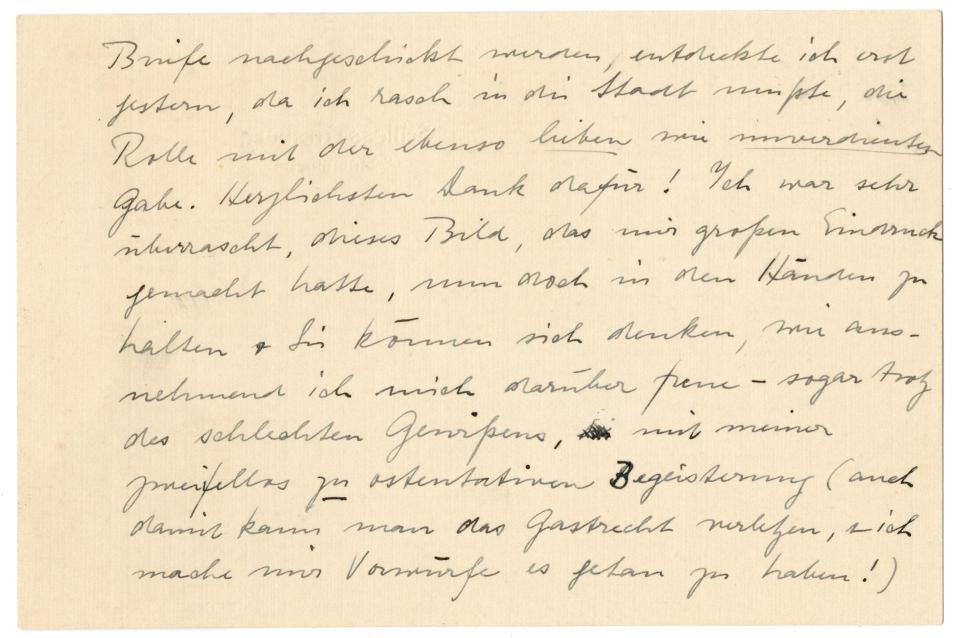 Briefe nachgeschickt werden, entdeckte ich erst
gestern, da ich rasch in die Stadt mußte, die
Rolle mit der ebenso lieben wie unverdienten
Gabe. Herzlichsten Dank dafür! Ich war sehr
überrascht, dieses Bild, das mir großen Eindruck
gemacht hatte, nun doch in den Händen zu
halten & Sie können sich denken, wie aus-
nehmend ich mich darüber freue – sogar trotz
des schlechten Gewißens, mit meiner
zweifellos zu ostentativen Begeisterung (auch
damit kann man das Gastrecht verletzen, & ich
mache mir Vorwürfe es getan zu haben!)